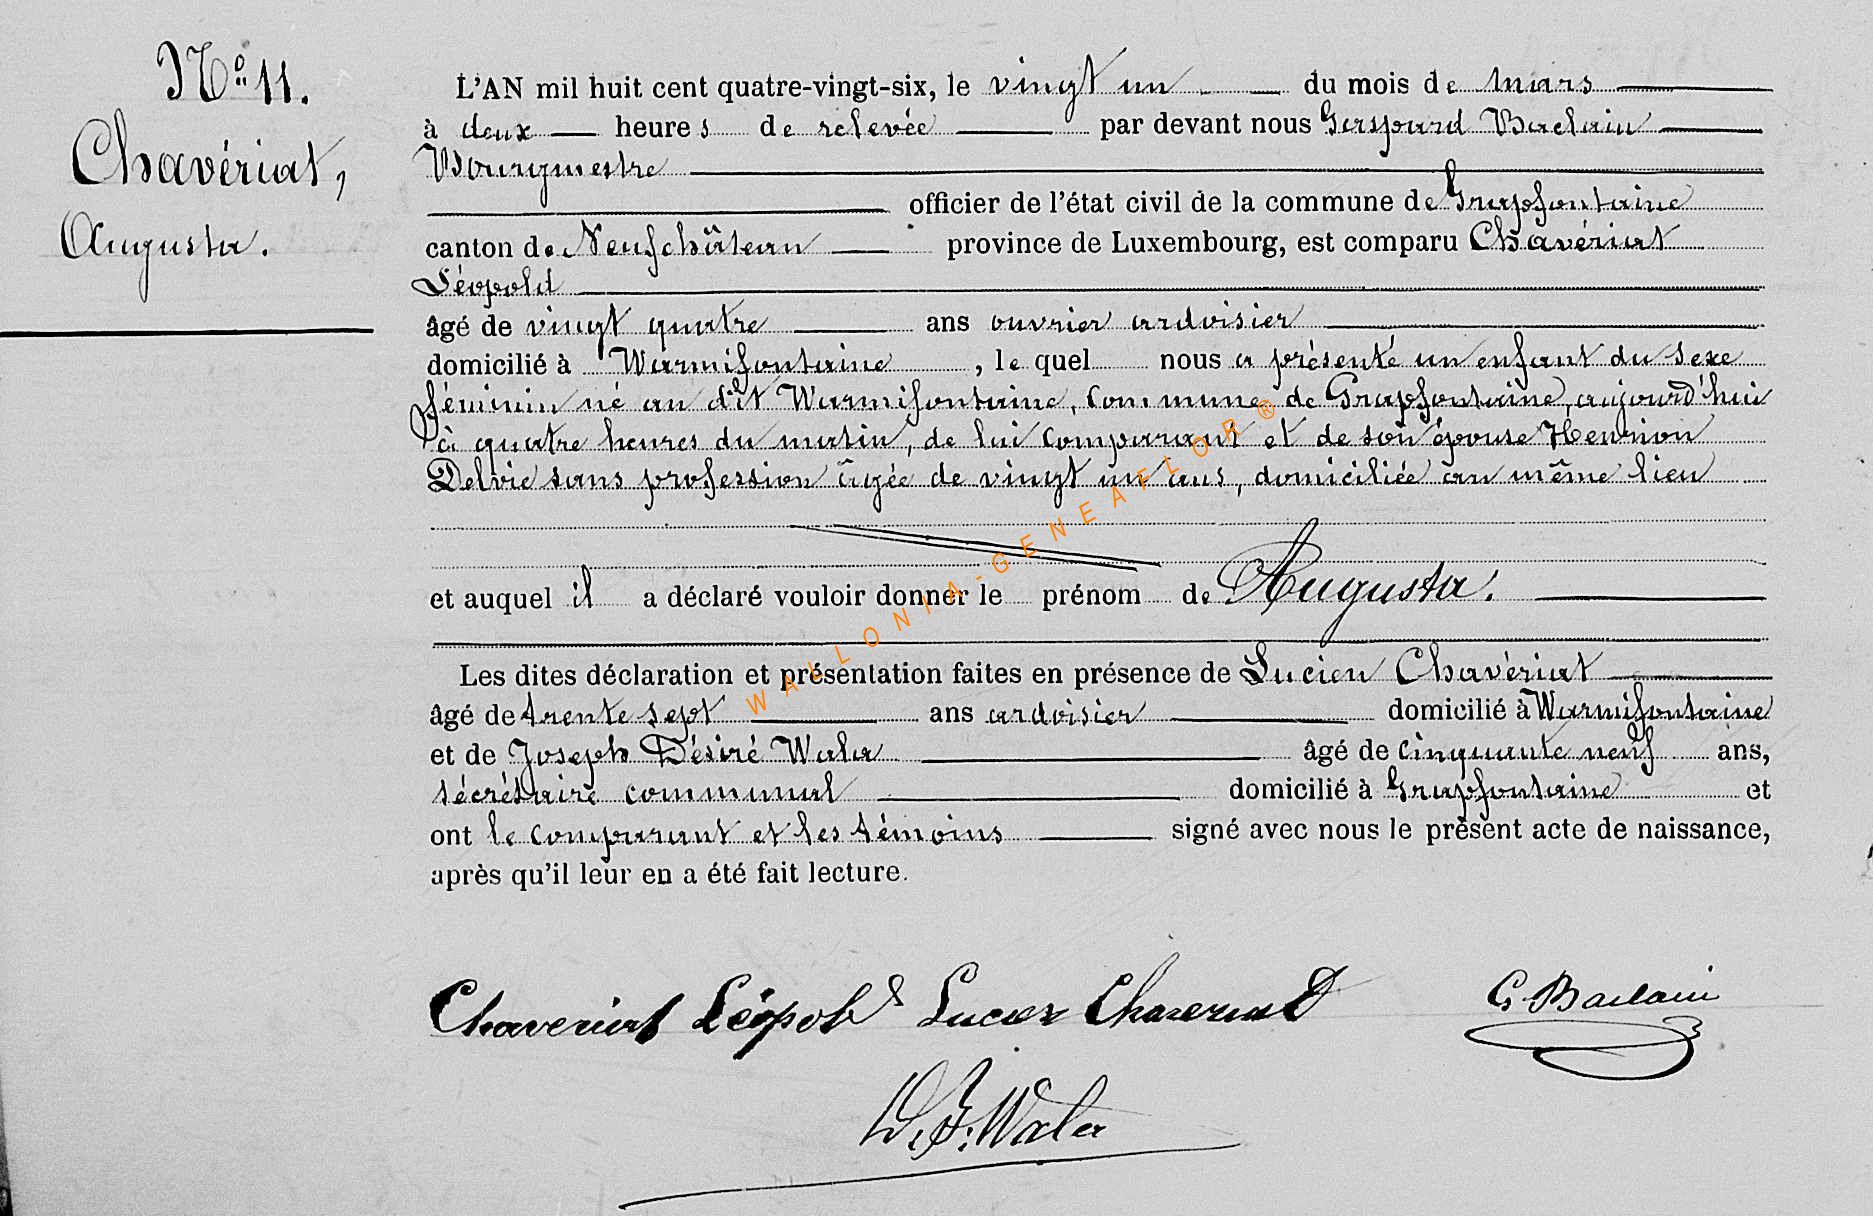 No 11.
Chavériat,
Augusta.
L'AN mil huit cent quatre-vingt-six, le vingt un du mois de mars
à deux heures de relevée par devant nous Gaspard Baclain
Bourgmestre
officier de l'état civil de la commune de Grapfontaine
canton de Neufchâteau province de Luxembourg, est comparu Chavériat
Léopold
âgé de vingt quatre ans ouvrier ardoisier
domicilié à Warmifontaine, le quel nous a présenté un enfant du sexe
féminin né au dit Warmifontaine, commune de Grapfontaine, aujourd'hui
à quatre heures du matin, de lui comparant et de son épouse Henrion
Delvie sans profession âgée de vingt un ans, domiciliée au même lieu
et auquel il a déclaré vouloir donner le prénom de Augusta.
Les dites déclaration et présentation faites en présence de Lucien Chavériat
âgé de trente sept ans ardoisier domicilié à Warmifontaine
et de Joseph Désiré Wala âgé de cinquante neuf ans,
sécrétaire communal domicilié à Grapfontaine et
ont le comparant et les témoins signé avec nous le présent acte de naissance,
après qu'il leur en a été fait lecture.
Chaveriat Léopold Lucien Chaveriat G. Baclain
D. J. Wala
WALLONIA-GENEAFLOR®